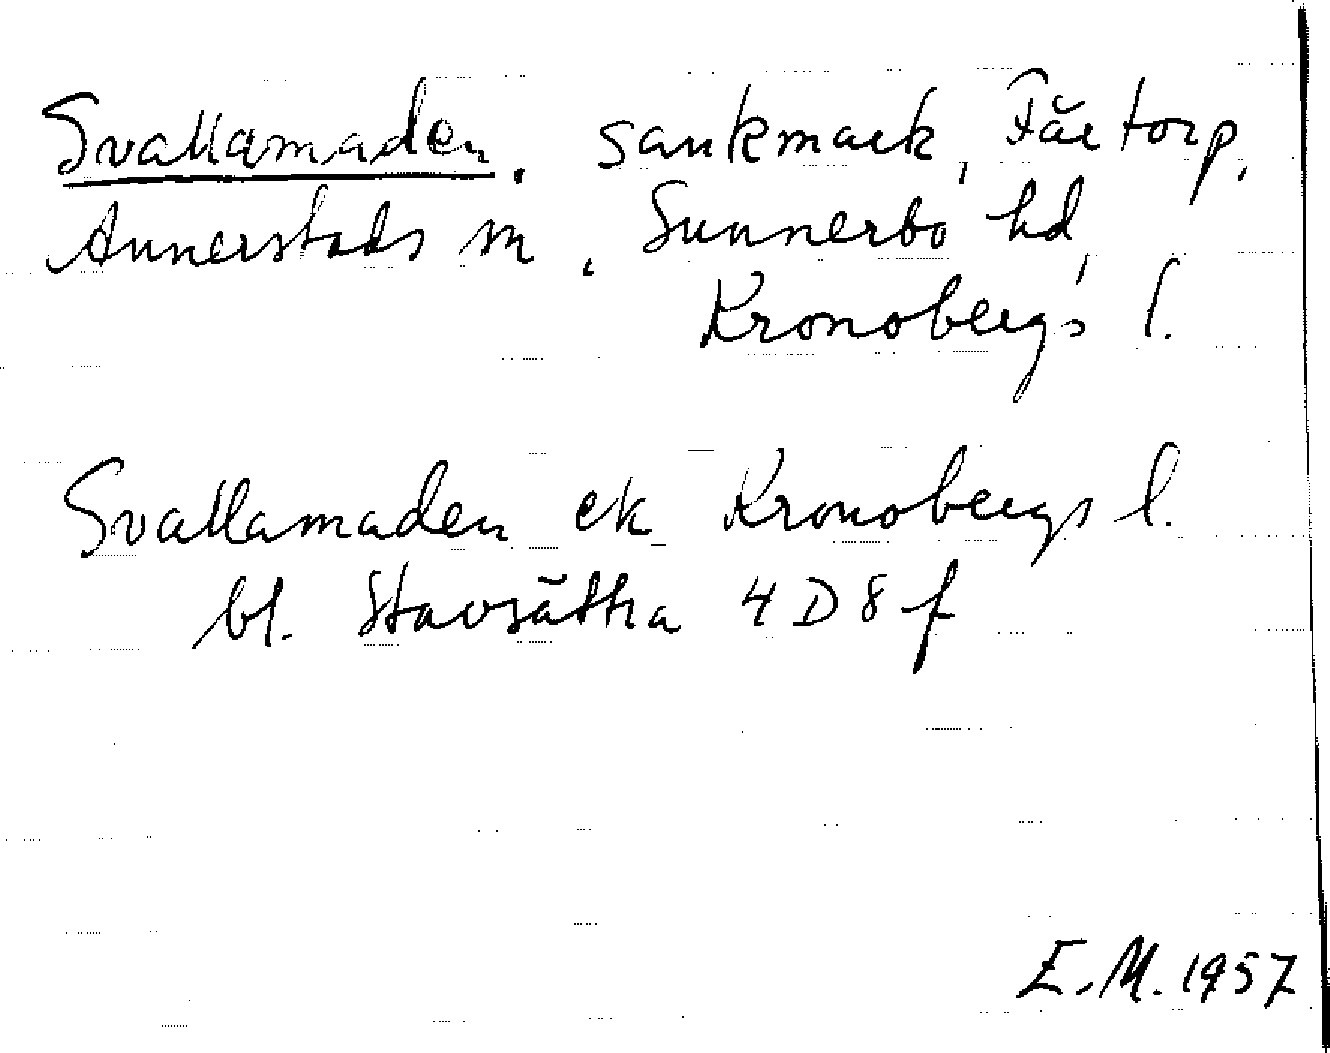 Svallamaden, sankmark, Fårtorp,
Annerstads sn, Sunnerbo hd,
Kronobergs l.
Svallamaden ek Kronobergs l.
bl. Stavsätra 4 D 8 f
E.M. 1957